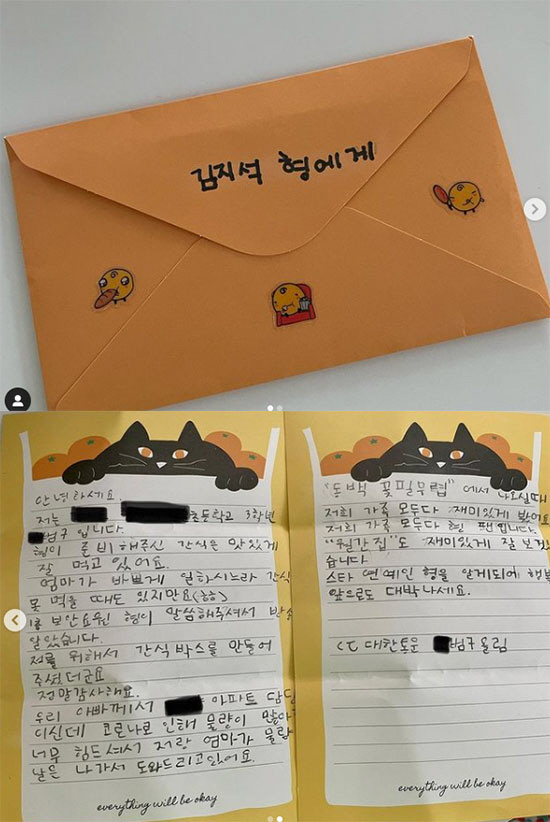 김지석 형에게
안녕하세요.
저는 초등학교 3학년
범구입니다.
형이 준비해주신 간식은 맛있게
잘 먹고 있어요.
엄마가 바쁘게 일하시느라 간식
못 먹을 때도 있지만요(ㅎㅎ)
1층 보안요원 형이 말씀해주셔서
알았습니다.
저를 위해서 간식박스를 만들어
주셨더군요
정말감사해요.
우리 아빠께서 아파트 담당
이신데 코로나로 인해 물량이 많아
너무 힘드셔서 저랑 엄마가 물량
많은 날은 나가서 도와드리고있어요.
everything will be okay
"동백 꽃필무렵" 에서 나오실때
저희 가족 모두다 재미있게 봤어요
저희 가족 모두다 형 팬입니다.
"월간집"도 재미있게 잘 보겠
습니다
스타 연예인 형을 알게되어 행복
앞으로도 대박나세요.
CJ 대한통운 범구올림
everything will be okay